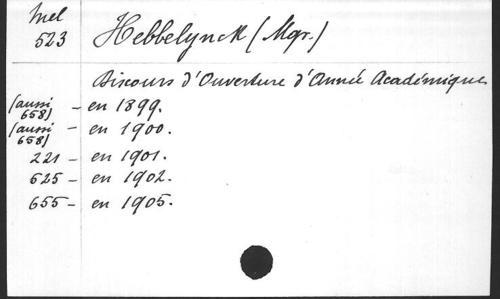 Mel
523 Hebbelynck (Mgr.)
Discours d'Ouverture d'Année Académique
(aussi 658) - en 1899.
(aussi 658) - en 1900.
221 - en 1901.
625 - en 1902.
655 - en 1905.